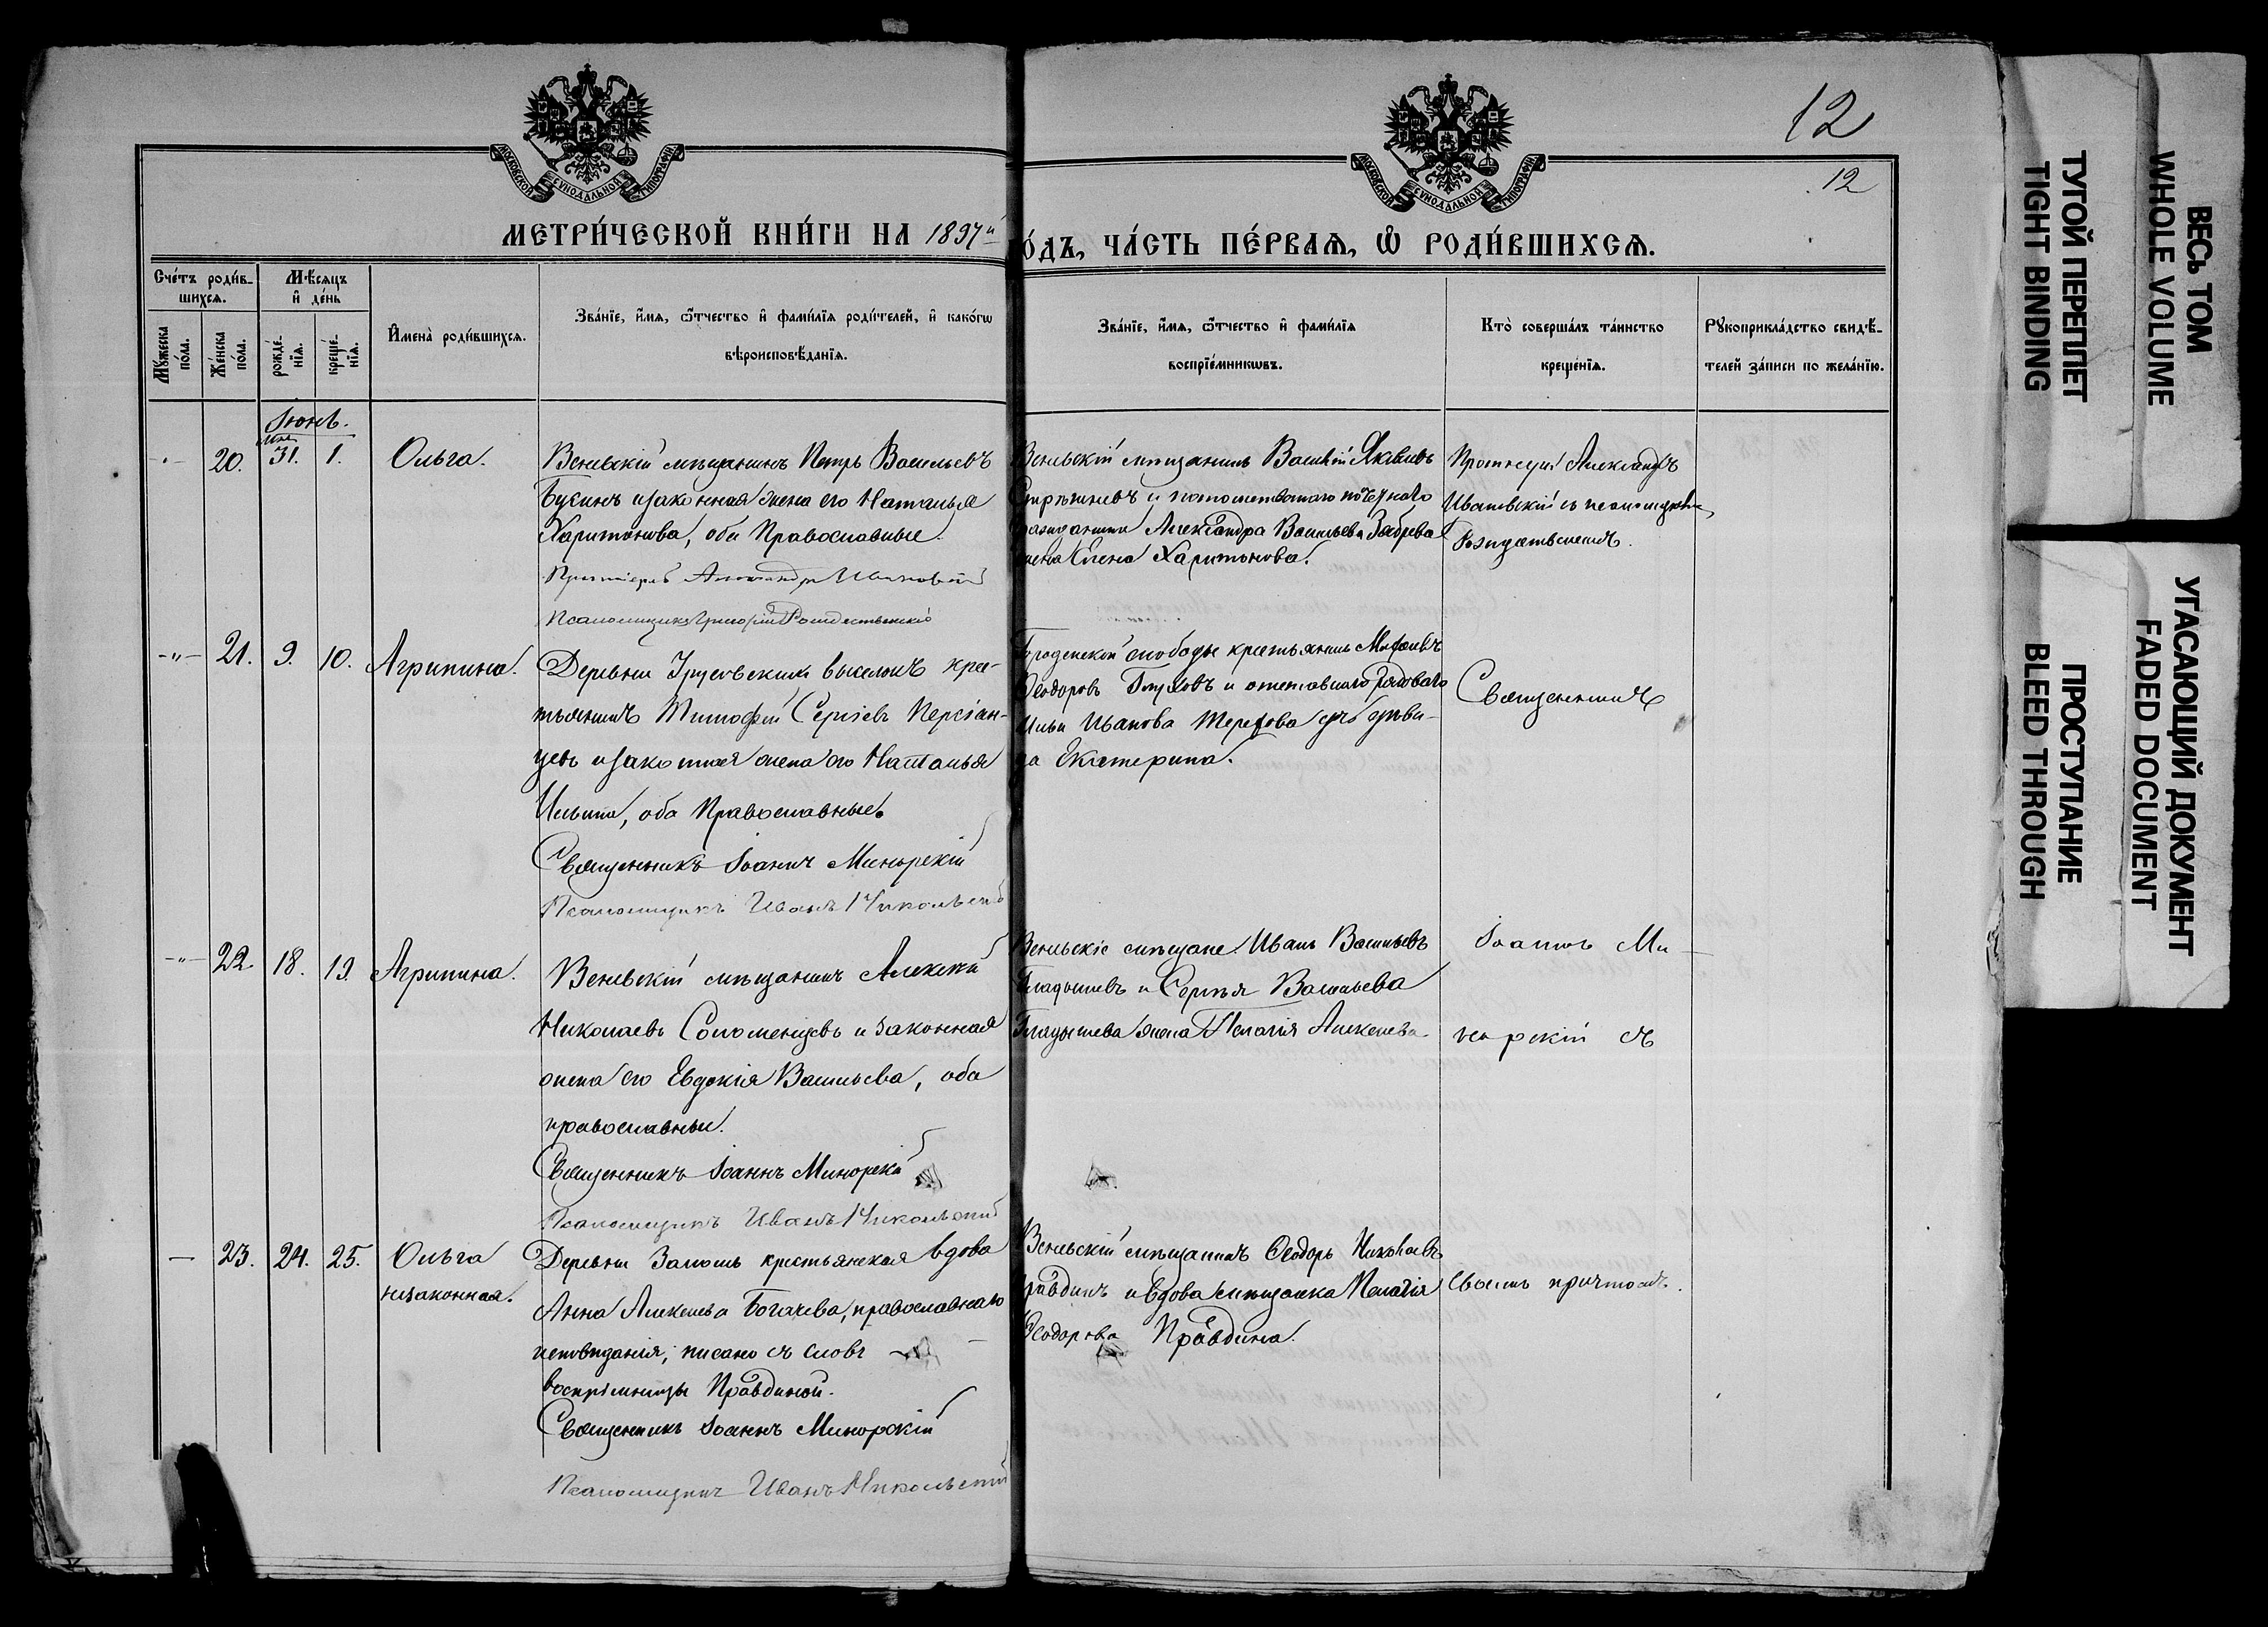 12
12
МОСКОВСКОЙ СѴНОДАЛЬНОЙ ТИПОГРАФІИ
МОСКОВСКОЙ СѴНОДАЛЬНОЙ ТИПОГРАФІИ
МЕТРИ́ЧЕСКОЙ КНИ́ГИ НА 1897й
О́ДЪ, ЧА́СТЬ ПЕ́РВАѦ, Ѡ҆ РОДИ́ВШИХСѦ.
Сче́тъ роди́в-
шихсѧ.
Мꙋ́жеска по́ла.
Же́нска по́ла.
Мѣ́сѧцъ
и҆ де́нь
рожде́-нїѧ.
креще́-нїѧ.
И҆мена̀ роди́вшихсѧ.
Зва́нїе, и҆́мѧ, ѻ҆́тчество и҆ фами́лїѧ роди́телей, и҆ како́гѡ
вѣроисповѣ́данїѧ.
Зва́нїе, и҆́мѧ, ѻ҆́тчество и҆ фами́лїѧ
воспрїе́мникѡвъ.
Кто̀ соверша́лъ та́инство
креще́нїѧ.
Рꙋкоприкла́дство свидѣ́-
телей за́писи по жела́нїю.
Іюнь.
20. Мая 31. 1. Ольга.
Веневскій мѣщанинъ Петръ Васильевъ
и законная жена его Наталья
Харитонова, оба Православные.
Протоіерей Александръ Ивановскій
Псаломщикъ Григорій Рождественскій
Веневскій мѣщанинъ Василій Яковлевъ
и потомственнаго почетнаго
гражданина Александра Васильева
жена Елена Харитонова.
Протоіерей Александръ
Ивановскій съ псаломщикомъ
Рождественскимъ.
-"- 21. 9. 10. Агрипина.
Деревни выселокъ кре-
стьянинъ Тимофей Сергіевъ Персіан-
цевъ и законная жена его Наталья
Ильина, оба Православные.
Священникъ Іоаннъ Минорскій
Псаломщикъ Иванъ Никольскій
Городенской слободы крестьянинъ
Ѳеодоровъ и отставнаго рядоваго
Ильи Иванова Терехова дочь дѣви-
ца Екатерина.
Священникъ
-"- 22. 18. 19. Агрипина.
Веневскій мѣщанинъ Алексѣй
Николаевъ Соломенцевъ и законная
жена его Евдокія Васильева, оба
православные.
Священникъ Іоаннъ Минорскій
Псаломщикъ Иванъ Никольскій
Веневскіе мѣщане: Иванъ Васильевъ
Гладышевъ и Сергѣя Васильева
Гладышева жена Пелагія Алексѣева.
Іоаннъ Ми-
норскій съ
— 23. 24. 25. Ольга
незаконная.
Деревни крестьянская вдова
Анна Алексѣева Богачева, православнаго
исповѣданія; писано съ словъ
воспріемницы Правдиной.
Священникъ Іоаннъ Минорскій
Псаломщикъ Иванъ Никольскій
Веневскій мѣщанинъ Ѳеодоръ Николаевъ
Правдинъ и вдова мѣщанка Пелагія
Ѳеодорова Правдина.
своимъ причтомъ.
ТУГОЙ ПЕРЕПЛЕТ
TIGHT BINDING
ВЕСЬ ТОМ
WHOLE VOLUME
ПРОСТУПАНИЕ
BLEED THROUGH
УГАСАЮЩИЙ ДОКУМЕНТ
FADED DOCUMENT